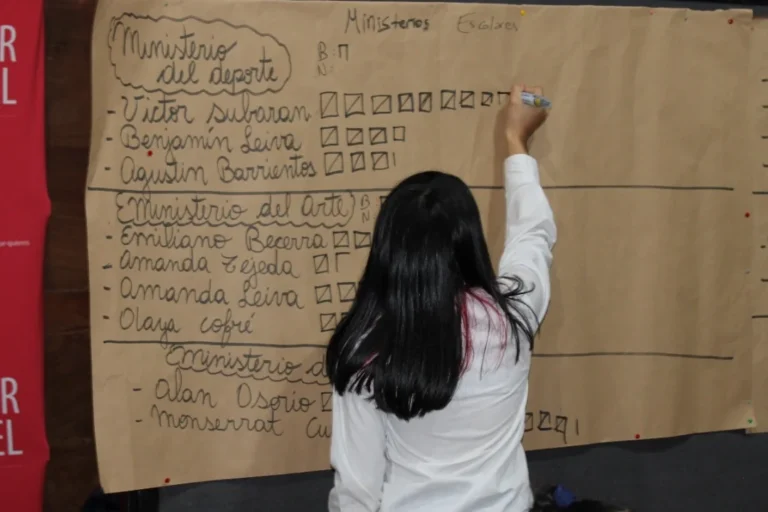 Ministerios Escolares
Ministerio del deporte
B:
N:
- Victor subaran
- Benjamín Leiva
- Agustin Barrientos
Ministerio del Arte
B
N
- Emiliano Becerra
- Amanda Tejeda
- Amanda Leiva
- Olaya cofré
Ministerio
- Alan Osorio
- Monserrat
R
L
R
EL